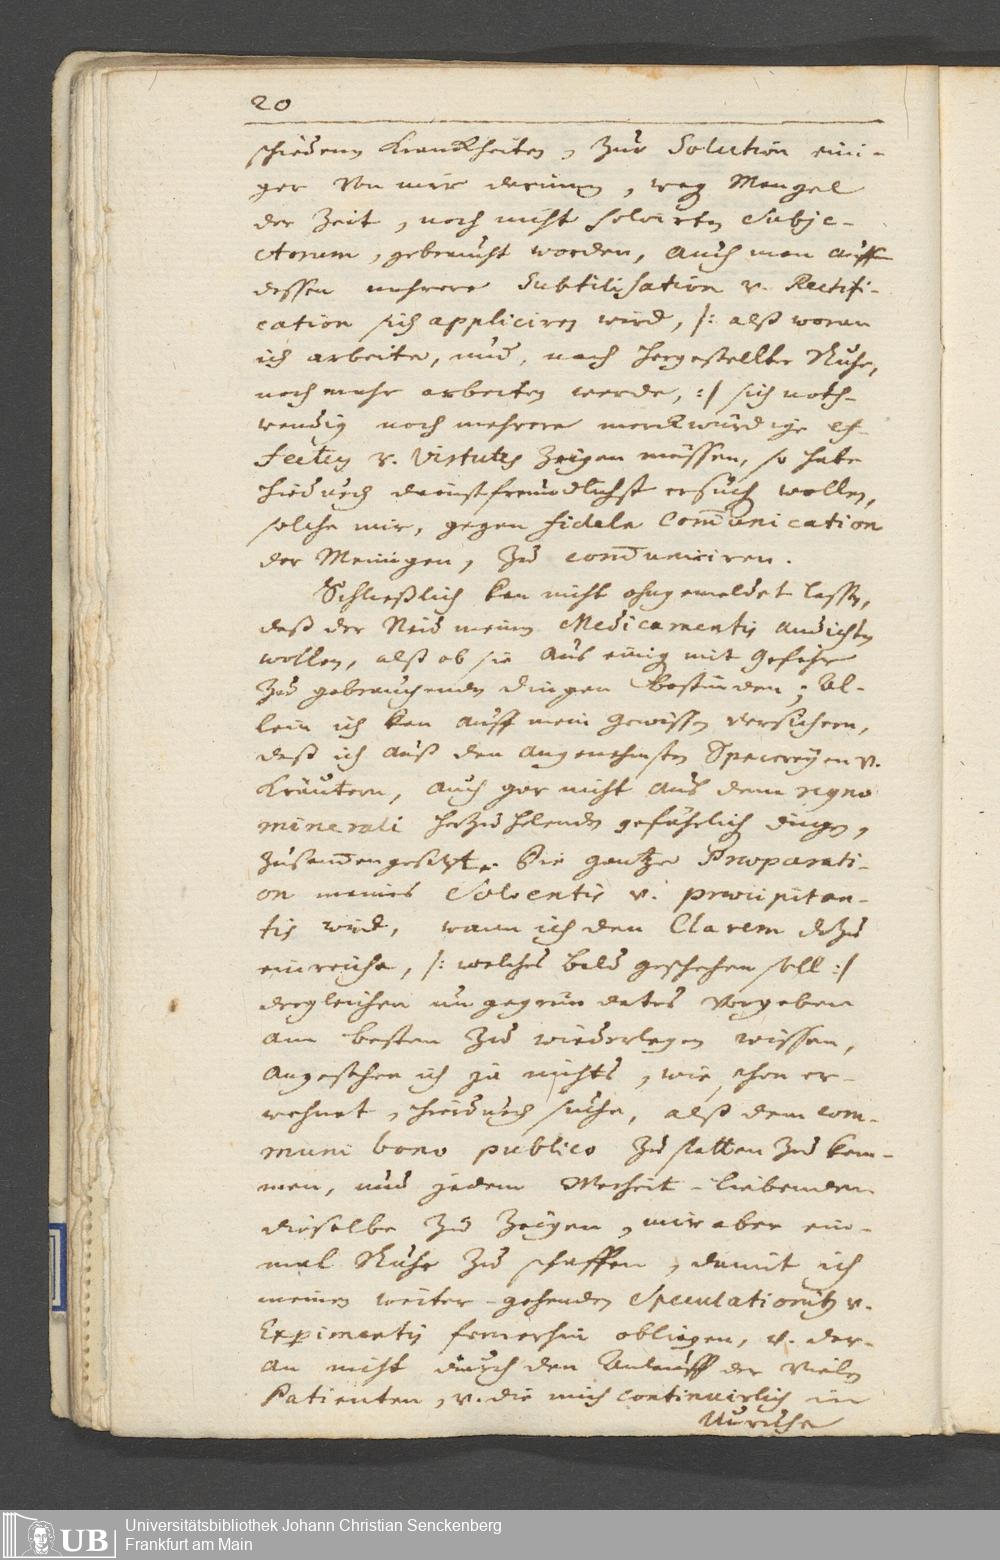 20
schiedenen Kranckheiten, zur Solution eini-
ger von mir darinnen, weg Mangel
der Zeit, noch nicht solvirten Subje-
ctorum, gebraucht worden, auch man auff
dessen mehrere Subtilisation v. Rectifi-
cation sich appliciren wird, /: alß woran
ich arbeite, und, nach hergestellter Ruhe,
noch mehr arbeiten werde, :/ sich noth-
wendig noch mehrere merckwürdige Ef-
fecten v. Virtutes zeigen müssen, so habe
hiedurch dienstfreundlichst ersuchen wollen,
solche mir, gegen fidele Com̄unication
der Meinigen, zu com̄uniciren.
Schließlich kan nicht ohngemeldet lassen,
daß der Neid meinen Medicamentis andichten
wollen, alß ob sie aus einig mit Gefahr
zu gebrauchenden dingen bestünden; Al-
lein ich kan auff mein Gewissen versichern,
daß ich auß den angenehmsten Specereyen v.
Kräutern, auch gar nicht aus dem regno
minerali herzuholenden gefährlichen dingen,
zusam̄engesetzt. Die gantze Præparati-
on meines Solventis v. præcipitan-
tis wird, wann ich den Clavem dazu
einreiche, /: welches bald geschehen soll :/
dergleichen ungegründetes Vorgeben
am besten zu wiederlegen wissen,
Angesehen ich ja nichts, wie schon er-
wehnet, hiedurch suche, alß dem com-
muni bono publico zu statten zu kom-
men, und jedem Warheit-liebenden
dieselbe zu zeigen, mir aber ein-
mal Ruhe zu schaffen, damit ich
meinen weiter-gehenden Speculationibus v.
Experimentis fernerhin obliegen, v. dar-
an nicht durch den Anlauff der vielen
Patienten, v. die mich continuirlich in
Unruhe
Universitätsbibliothek Johann Christian Senckenberg
Frankfurt am Main
UB